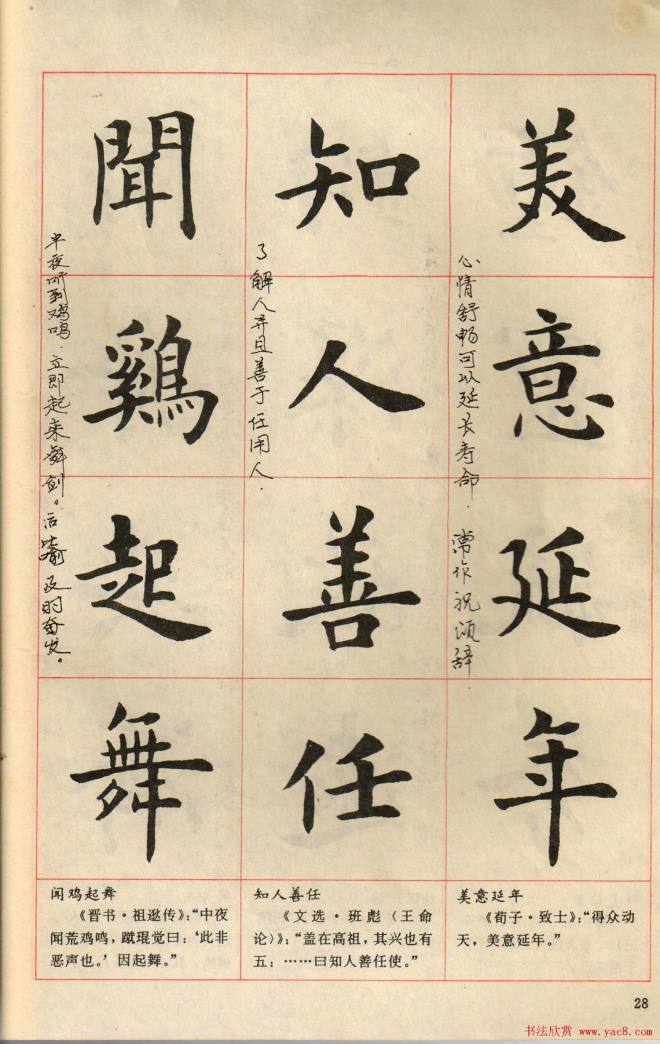 美意延年
心情舒畅可以延长寿命.常作祝颂辞.
知人善任
了解人并且善于任用人.
聞鷄起舞
半夜听到鸡鸣.立即起来舞剑。后比喻及时奋发。
美意延年
《荀子·致士》:“得众动
天，美意延年。”
知人善任
《文选·班彪〈王命
论〉》:“盖在高祖，其兴也有
五：……曰知人善任使。”
闻鸡起舞
《晋书·祖逖传》:“中夜
闻荒鸡鸣，蹴琨觉曰：‘此非
恶声也。’因起舞。”
28
书法欣赏 www.yac8.com